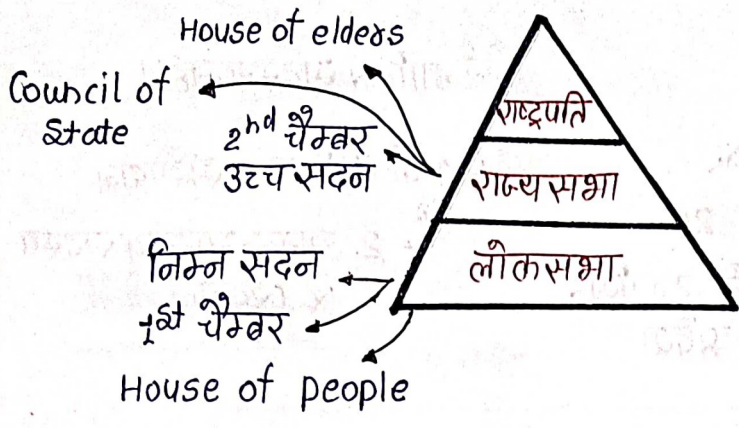 House of elders
Council of
State
2nd चैम्बर
उच्च सदन
राष्ट्रपति
राज्य सभा
निम्न सदन
1st चैम्बर
लोकसभा
House of people